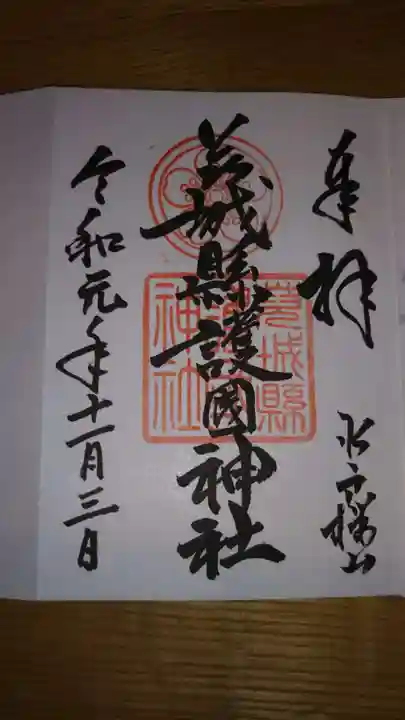 奉拝
水戸桜山
茨城縣護國神社
茨城縣護國神社
令和元年十一月三日